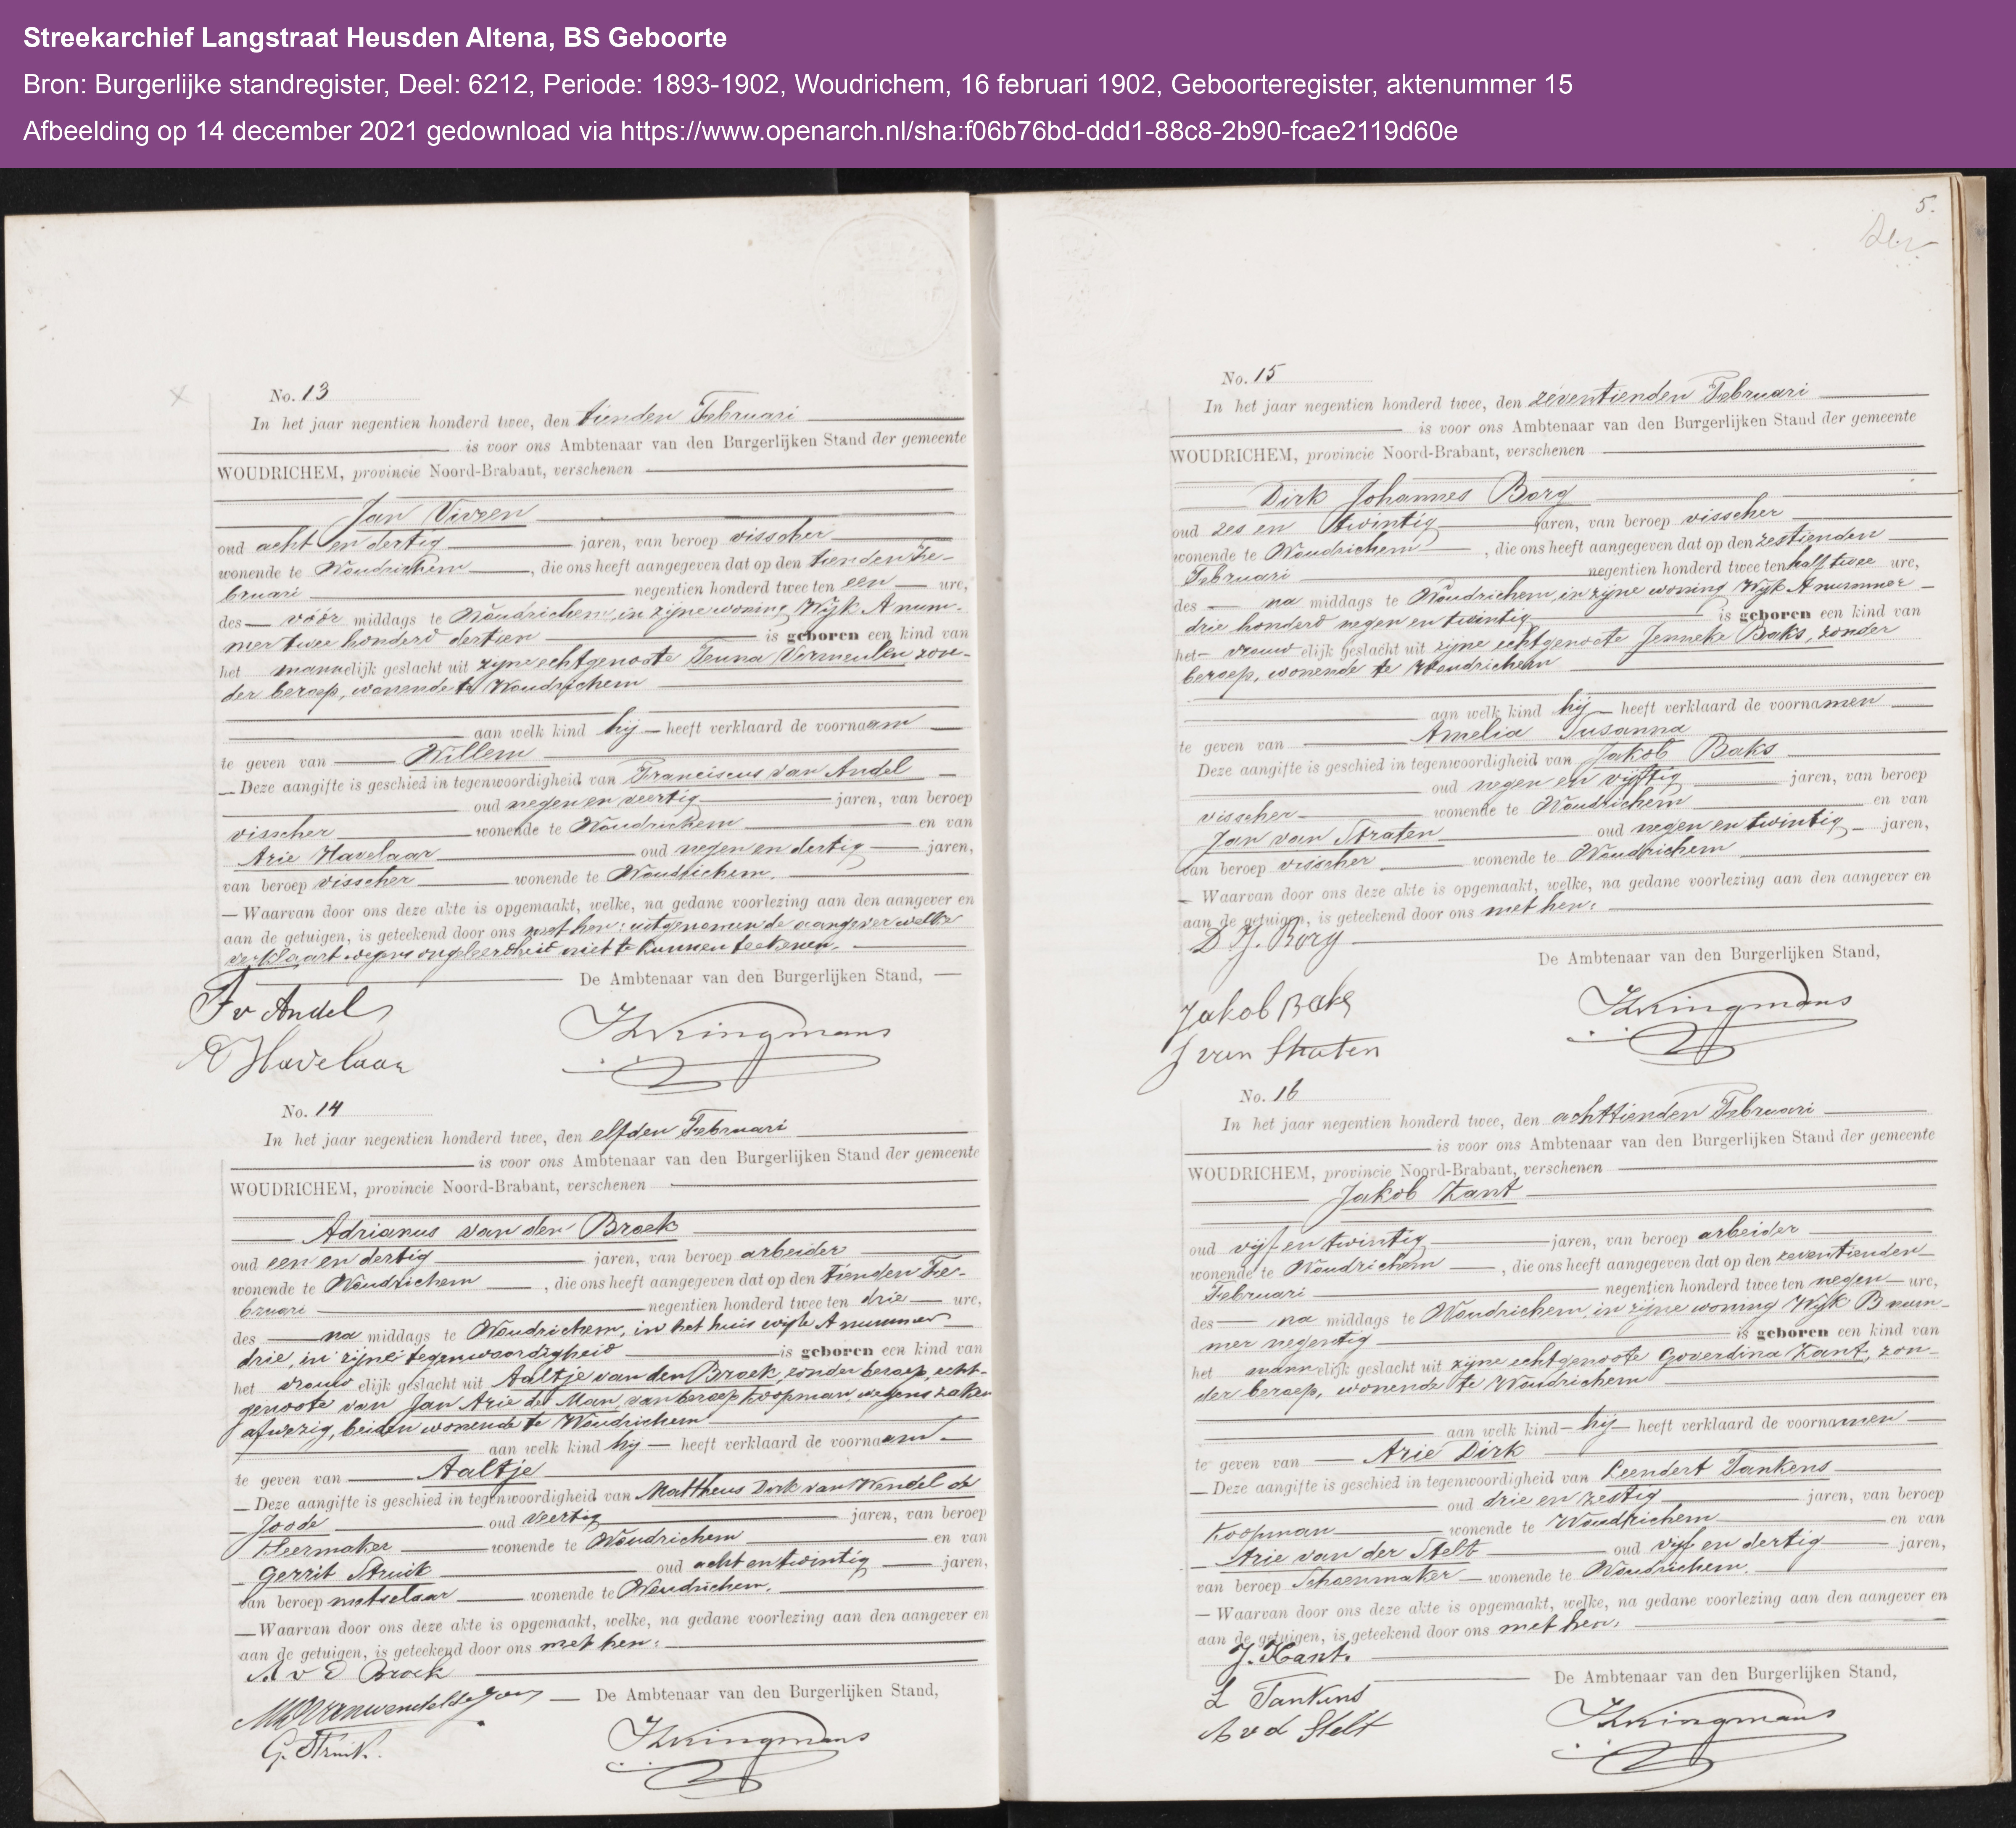 Streekarchief Langstraat Heusden Altena, BS Geboorte
Bron: Burgerlijke standregister, Deel: 6212, Periode: 1893-1902, Woudrichem, 16 februari 1902, Geboorteregister, aktenummer 15
Afbeelding op 14 december 2021 gedownload via https://www.openarch.nl/sha:f06b76bd-ddd1-88c8-2b90-fcae2119d60e
No. 13
In het jaar negentien honderd twee, den tienden Februari
is voor ons Ambtenaar van den Burgerlijken Stand der gemeente
WOUDRICHEM, provincie Noord-Brabant, verschenen
Jan Viveen
oud acht en dertig jaren, van beroep visscher
wonende te Woudrichem, die ons heeft aangegeven dat op den tienden Fe-
bruari negentien honderd twee ten een ure,
des vóór middags te Woudrichem, in zijne woning Wijk A num-
mer twee honderd dertien is geboren een kind van
het mannelijk geslacht uit zijne echtgenoote Jenna Vermeulen zon-
der beroep, wonende te Woudrichem
aan welk kind hij heeft verklaard de voornaam
te geven van Willem
Deze aangifte is geschied in tegenwoordigheid van Franciscus van Andel
oud negen en veertig jaren, van beroep
visscher wonende te Woudrichem en van
Arie Havelaar oud negen en dertig jaren,
van beroep visscher wonende te Woudrichem.
Waarvan door ons deze akte is opgemaakt, welke, na gedane voorlezing aan den aangever en
aan de getuigen, is geteekend door ons met hen; uitgenomen de aangever welke
verklaart wegens ongeleerdheid niet te kunnen teekenen.
De Ambtenaar van den Burgerlijken Stand,
F v Andel
A Havelaar
No. 14
In het jaar negentien honderd twee, den elfden Februari
is voor ons Ambtenaar van den Burgerlijken Stand der gemeente
WOUDRICHEM, provincie Noord-Brabant, verschenen
Adrianus van den Broek
oud een en dertig jaren, van beroep arbeider
wonende te Woudrichem, die ons heeft aangegeven dat op den tienden Fe-
bruari negentien honderd twee ten drie ure,
des na middags te Woudrichem, in het huis wijk A nummer
drie, in zijne tegenwoordigheid is geboren een kind van
het vrouwelijk geslacht uit Aaltje van den Broek, zonder beroep, echt-
genoote van Jan Arie de Man, van beroep koopman, wegens zaken
afwezig, beiden wonende te Woudrichem
aan welk kind hij heeft verklaard de voornaam
te geven van Aaltje
Deze aangifte is geschied in tegenwoordigheid van Mattheus Dirk van Wendel de
Joode oud veertig jaren, van beroep
kleermaker wonende te Woudrichem en van
Gerrit Struik oud acht en twintig jaren,
van beroep metselaar wonende te Woudrichem.
Waarvan door ons deze akte is opgemaakt, welke, na gedane voorlezing aan den aangever en
aan de getuigen, is geteekend door ons met hen.
A v d Broek
De Ambtenaar van den Burgerlijken Stand,
G. Struik.
5.
No. 15
In het jaar negentien honderd twee, den zeventienden Februari
is voor ons Ambtenaar van den Burgerlijken Stand der gemeente
WOUDRICHEM, provincie Noord-Brabant, verschenen
Dirk Johannes Borg
oud zes en twintig jaren, van beroep visscher
wonende te Woudrichem, die ons heeft aangegeven dat op den zestienden
Februari negentien honderd twee ten half twee ure,
des na middags te Woudrichem, in zijne woning Wijk A nummer
drie honderd negen en twintig is geboren een kind van
het vrouwelijk geslacht uit zijne echtgenoote Jenneke Baks, zonder
beroep, wonende te Woudrichem
aan welk kind hij heeft verklaard de voornamen
te geven van Amelia Susanna
Deze aangifte is geschied in tegenwoordigheid van Jakob Baks
oud negen en vijftig jaren, van beroep
visscher wonende te Woudrichem en van
Jan van Straten oud negen en twintig jaren,
van beroep visscher wonende te Woudrichem
Waarvan door ons deze akte is opgemaakt, welke, na gedane voorlezing aan den aangever en
aan de getuigen, is geteekend door ons met hen.
D J. Borg
De Ambtenaar van den Burgerlijken Stand,
Jakob Baks
J van Straten
No. 16
In het jaar negentien honderd twee, den achttienden Februari
is voor ons Ambtenaar van den Burgerlijken Stand der gemeente
WOUDRICHEM, provincie Noord-Brabant, verschenen
Jakob Kant
oud vijf en twintig jaren, van beroep arbeider
wonende te Woudrichem, die ons heeft aangegeven dat op den zeventienden
Februari negentien honderd twee ten negen ure,
des na middags te Woudrichem, in zijne woning Wijk B num-
mer negentig is geboren een kind van
het mannelijk geslacht uit zijne echtgenoote Goverdina Kant, zon-
der beroep, wonende te Woudrichem
aan welk kind hij heeft verklaard de voornamen
te geven van Arie Dirk
Deze aangifte is geschied in tegenwoordigheid van Leendert Tankens
oud drie en zestig jaren, van beroep
koopman wonende te Woudrichem en van
Arie van der Stelt oud vijf en dertig jaren,
van beroep Schoenmaker wonende te Woudrichem.
Waarvan door ons deze akte is opgemaakt, welke, na gedane voorlezing aan den aangever en
aan de getuigen, is geteekend door ons met hen.
J. Kant.
De Ambtenaar van den Burgerlijken Stand,
L Tankens
A v d Stelt